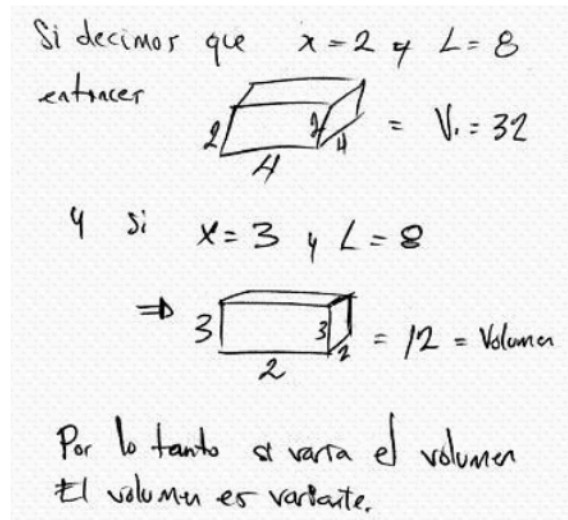 Si decimos que x = 2 y L = 8
entonces
2 2 4 = V. = 32
4
y si x = 3 y L = 8
⇒ 3 3 2 = 12 = Volumen
2
Por lo tanto si varia el volumen
El volumen es variante.